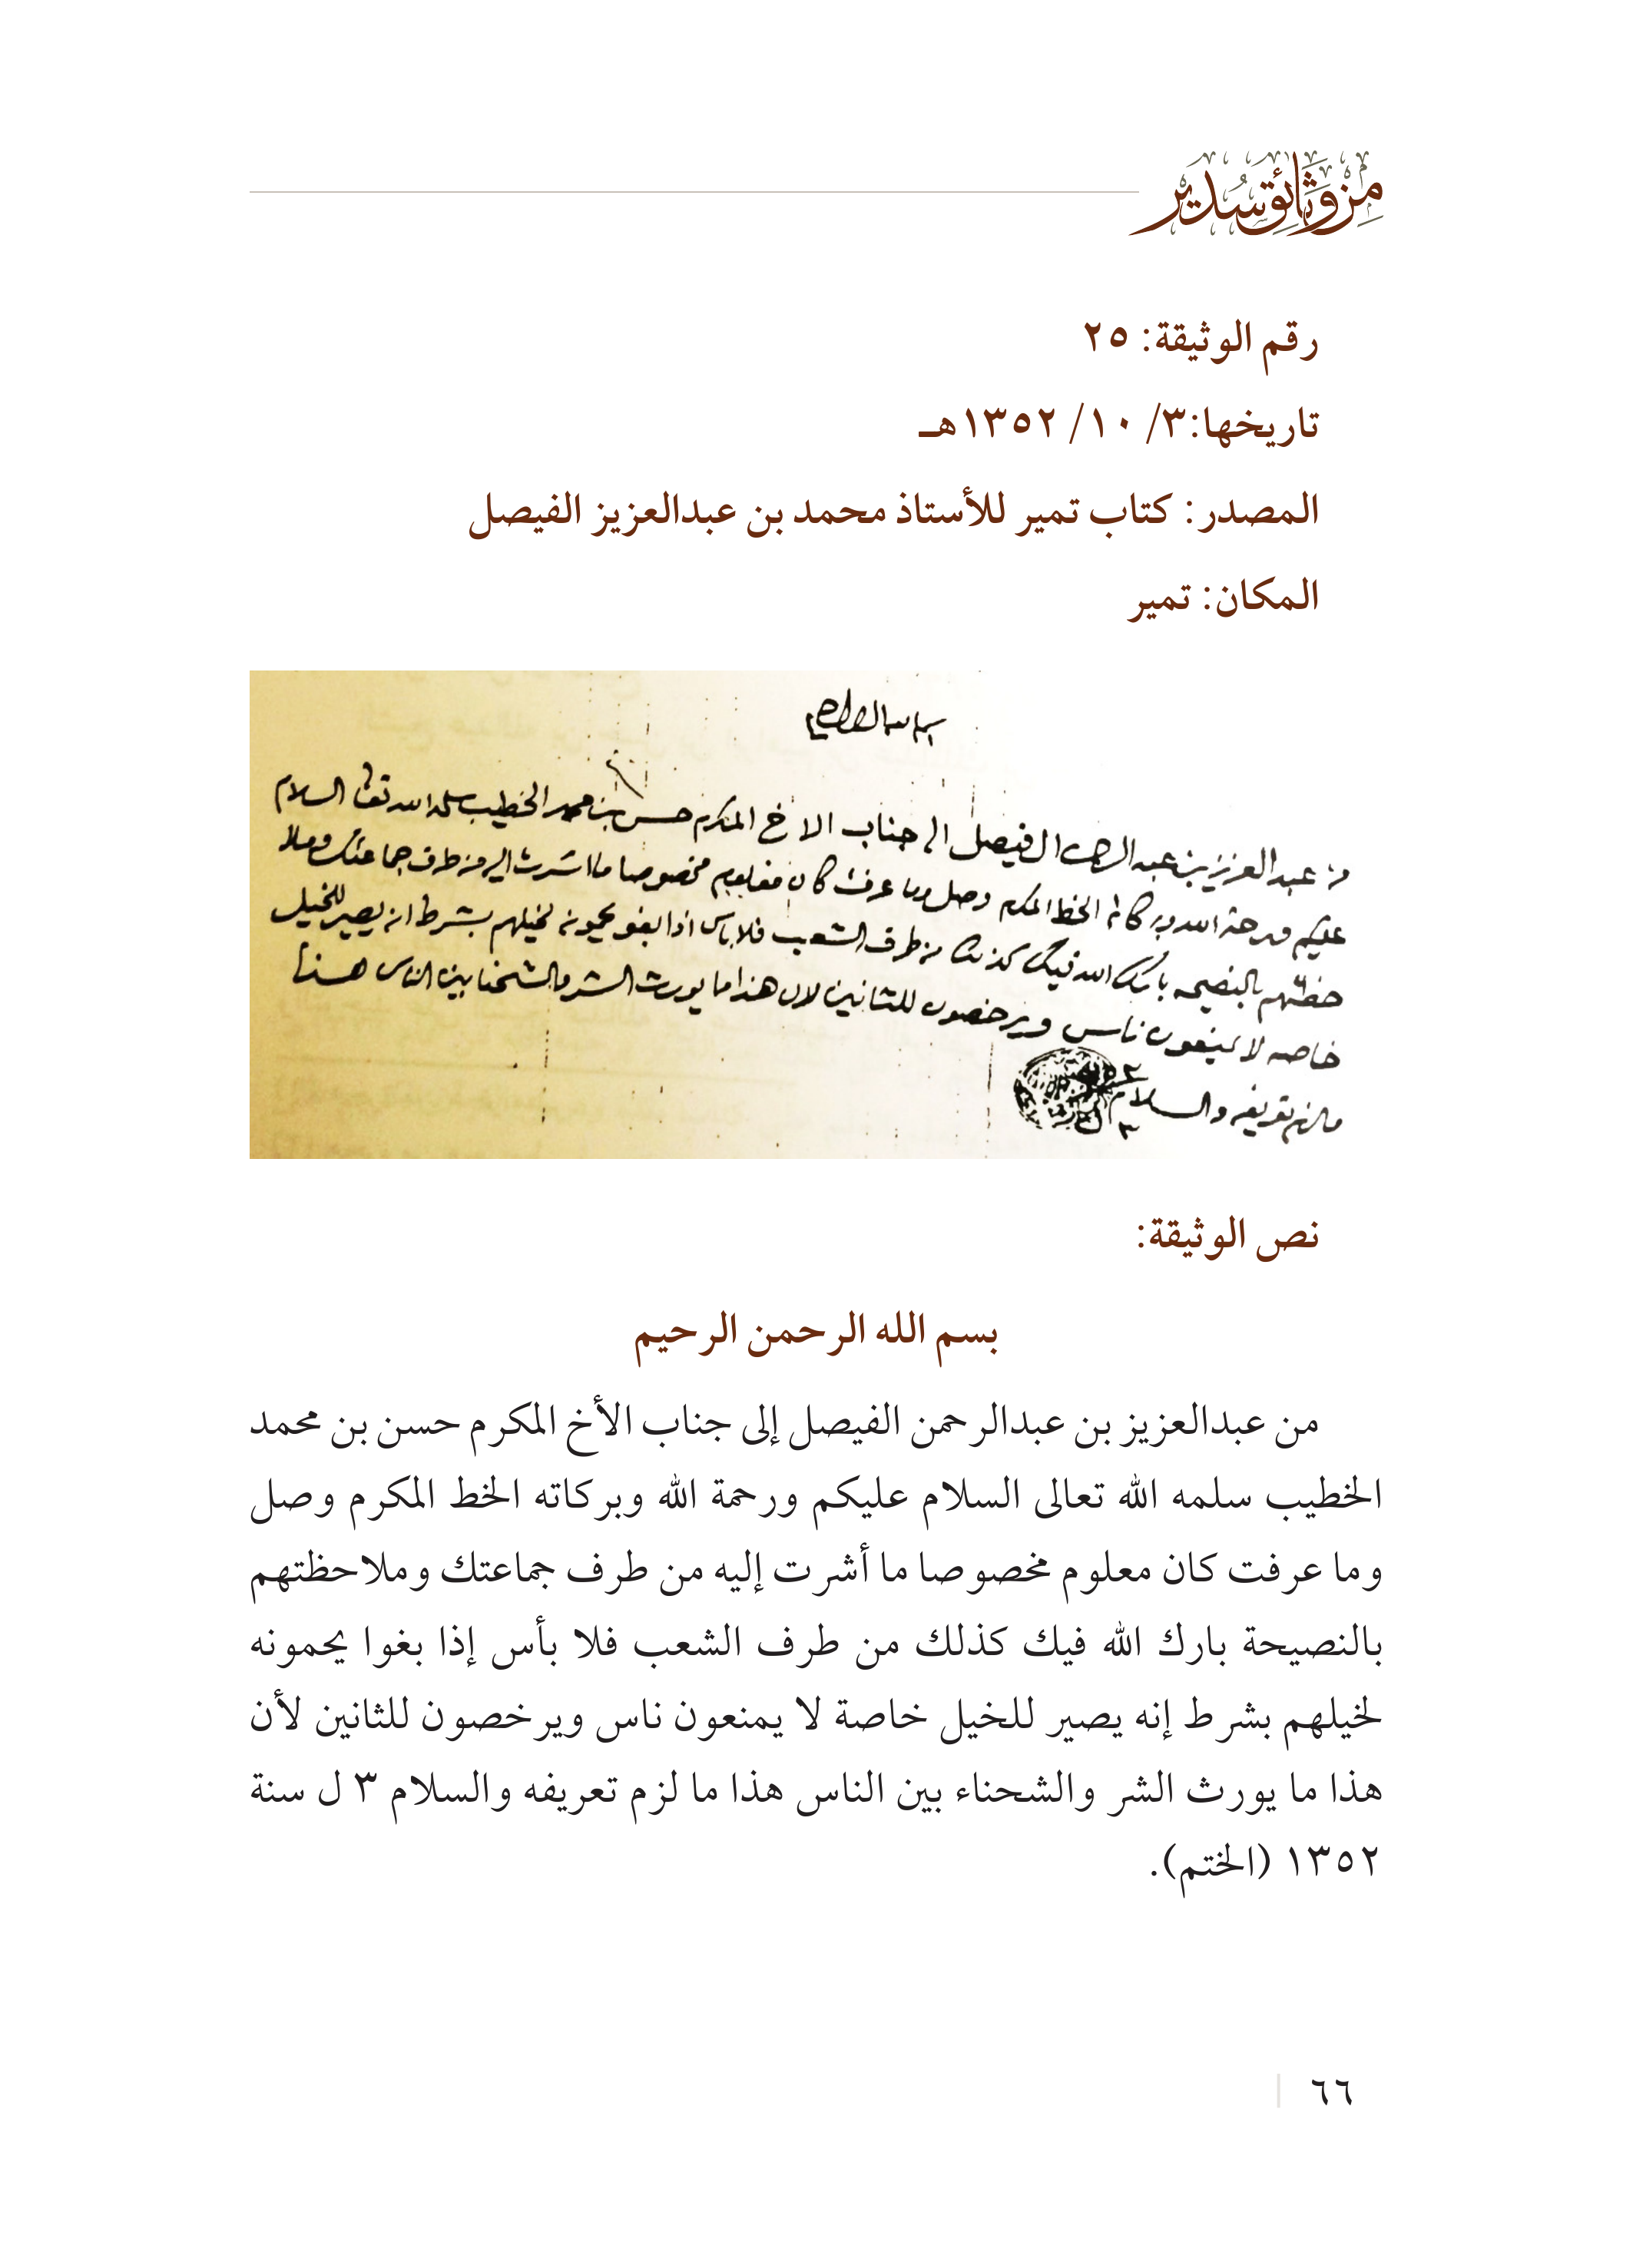 من وثائق سدير
رقم الوثيقة: ٢٥
تاريخها:٣/ ١٠/ ١٣٥٢هـ
المصدر: كتاب تمير للأستاذ محمد بن عبدالعزيز الفيصل
المكان: تمير
من عبد العزيز بن عبد الرحمن ال فيصل الى جناب الاخ المكرم حسن بن محمد الخطيب سلمه الله تعالى السلام
عليكم ورحمة الله وبركاته الخط المكرم وصل وما عرفت كان معلوم مخصوصا ما اشرت اليه من طرف جماعتك وملا
حضتهم بالنصيحه بارك الله فيك كذلك من طرف الشعب فلا باس اذا بغو يحمونه لخيلهم بشرط انه يصير للخيل
خاصه لا يمنعون ناس ويرخصون للثانين لان هذا ما يورث الشر والشحنا بين الناس هذا
مالزم تعريفه والسلام
نص الوثيقة:
بسم الله الرحمن الرحيم
من عبدالعزيز بن عبدالرحمن الفيصل إلى جناب الأخ المكرم حسن بن محمد
الخطيب سلمه الله تعالى السلام عليكم ورحمة الله وبركاته الخط المكرم وصل
وما عرفت كان معلوم مخصوصا ما أشرت إليه من طرف جماعتك وملاحظتهم
بالنصيحة بارك الله فيك كذلك من طرف الشعب فلا بأس إذا بغوا يحمونه
لخيلهم بشرط إنه يصير للخيل خاصة لا يمنعون ناس ويرخصون للثانين لأن
هذا ما يورث الشر والشحناء بين الناس هذا ما لزم تعريفه والسلام ٣ ل سنة
١٣٥٢ (الختم).
٦٦